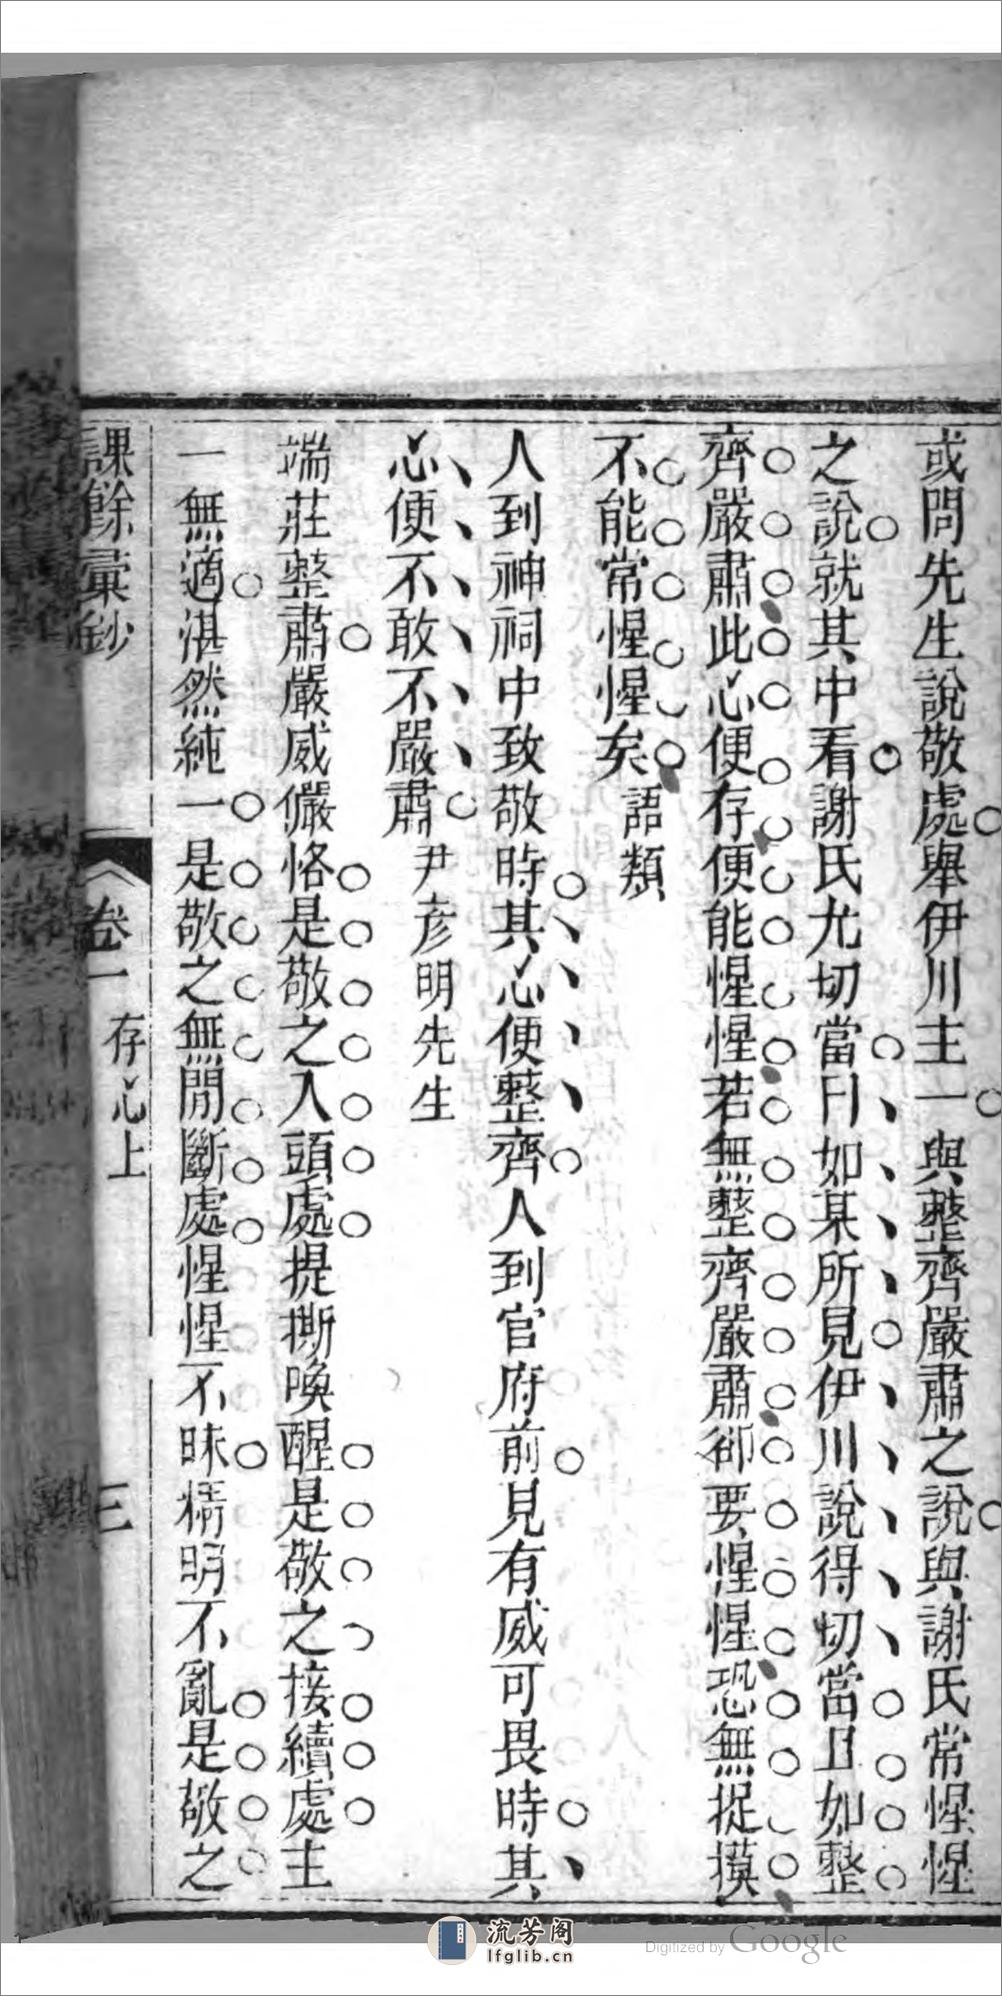 或問先生說敬處舉伊川主一與整齊嚴肅之說與謝氏常惺惺
之說就其中看謝氏尤切當曰如某所見伊川說得切當且如整
齊嚴肅此心便存便能惺惺若無整齊嚴肅卻要惺惺恐無捉摸
不能常惺惺矣 語類
人到神祠中致敬時其心便整齊人到官府前見有威可畏時其
心便不敢不嚴肅 尹彥明先生
端莊整肅嚴威儼恪是敬之入頭處提撕喚醒是敬之接續處主
一無適湛然純一是敬之無閒斷處惺惺不昧精明不亂是敬之
課餘彙鈔 卷一 存心上 三
流芳阁
lfglib.cn
Digitized by Google